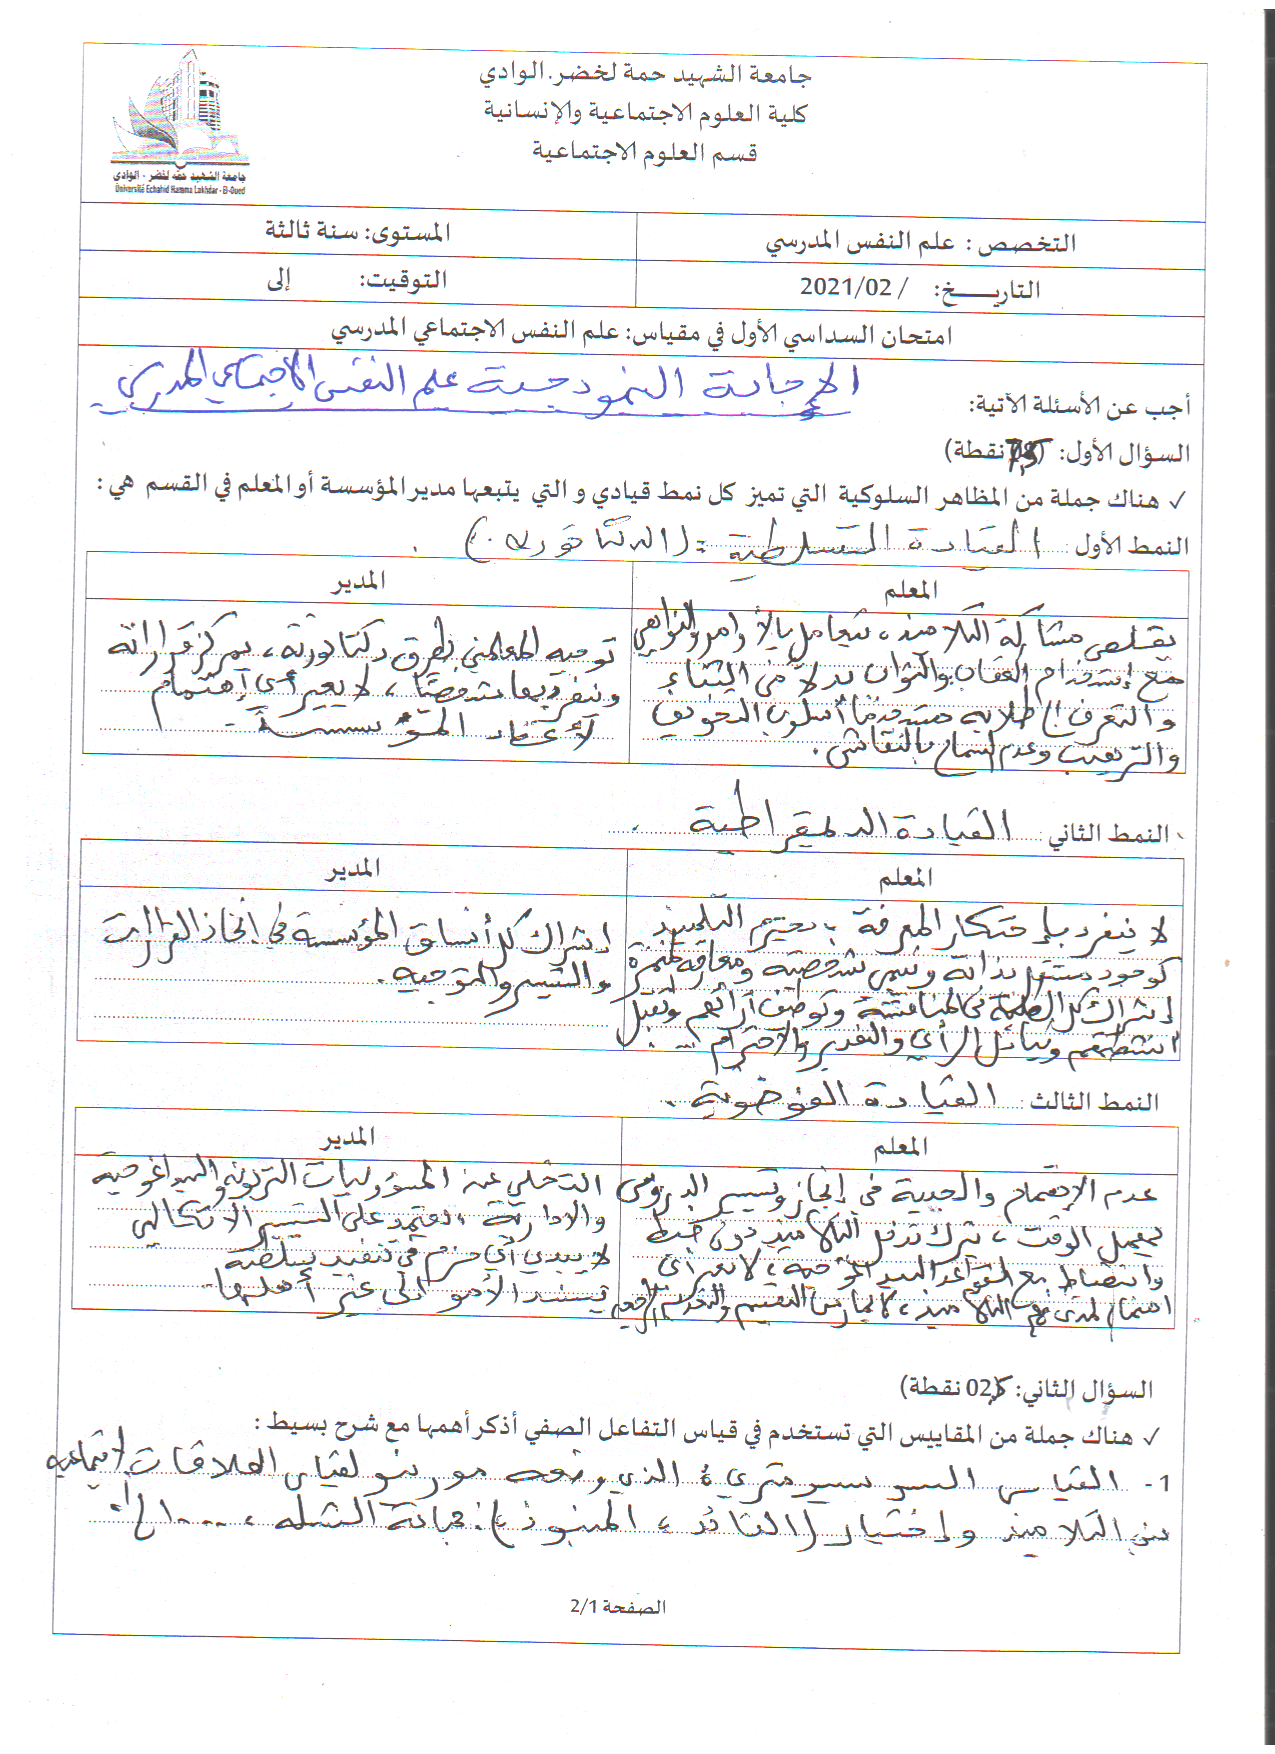 جامعة الشهيد حمة لخضر.الوادي
كلية العلوم الاجتماعية والإنسانية
قسم العلوم الاجتماعية
جامعة الشهيد حمه لخضر - الوادي
Université Echahid Hamma Lakhdar - El-Oued
التخصص: علم النفس المدرسي
المستوى: سنة ثالثة
التاريـــخ: / 2021/02
التوقيت: إلى
امتحان السداسي الأول في مقياس: علم النفس الاجتماعي المدرسي
الإجابة النموذجية علم النفس الاجتماعي المدرسي
أجب عن الأسئلة الآتية:
السؤال الأول: ( نقطة)
✓ هناك جملة من المظاهر السلوكية التي تميز كل نمط قيادي و التي يتبعها مدير المؤسسة أو المعلم في القسم هي :
النمط الأول: القيادة التسلطية: (الدكتاتورية).
المعلم
المدير
يقلص مشاركة التلاميذ، يتعامل بالأوامر والنواهي
مع إستخدام العقاب والثواب بدلا من الثناء
والتعرف طلابه مستخدما أسلوب التخويف
والترهيب وعدم السماح بالنقاش.
توجيه المعلمين بطرق دكتاتورية، يمركز قراراته
وينفرد بها شخصيا، لا يعير أي إهتمام
لأعضاء المؤسسة.
النمط الثاني: القيادة الديمقراطية.
المعلم
المدير
لا ينفرد بإحتكار المعرفة، يحترم التلميذ
كوجود مستقل بذاته وينمي شخصيته ومعارفه
إشراك كل الطلبة في المناقشة وتوظيف آرائهم وتقبل
أنشطتهم وتبادل الرأي والتقدير والاحترام ...
إشراك كل أنساق المؤسسة في إتخاذ القرارات
والتسيير والتوجيه.
النمط الثالث: القيادة الفوضوية.
المعلم
المدير
عدم الإهتمام والجدية في إنجاز وتسيير الدروس
يهمل الوقت، يترك التلاميذ دون ضبط
وانضباط مع القواعد البيداغوجية، لا يعير أي
اهتمام لمدى فهم التلاميذ، لا يمارس التقييم والتقويم
التخلي عن المسؤوليات التربوية والبيداغوجية
والادارية، يعتمد على التسيير الاتكالي
لا يبدي أي حزم في تنفيذ سلطته
تسند الأمور الى غير أهلها.
السؤال الثاني: (02 نقطة)
✓ هناك جملة من المقاييس التي تستخدم في قياس التفاعل الصفي أذكر أهمها مع شرح بسيط :
1- القياس السوسيومتري: الذي وضعه مورينو لقياس العلاقات الاجتماعية
بين التلاميذ وإختيار (القائد، المنبوذ)، جماعة الشلة، .... الخ.
الصفحة 2/1